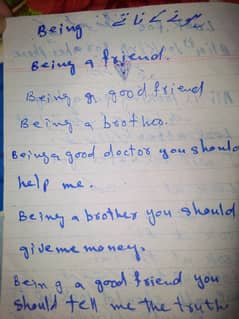 Being ہونے کے ناتے
Being a friend.
Being a good friend
Being a brother.
Being a good doctor you should
help me.
Being a brother you should
give me money.
Being a good friend you
should tell me the truth